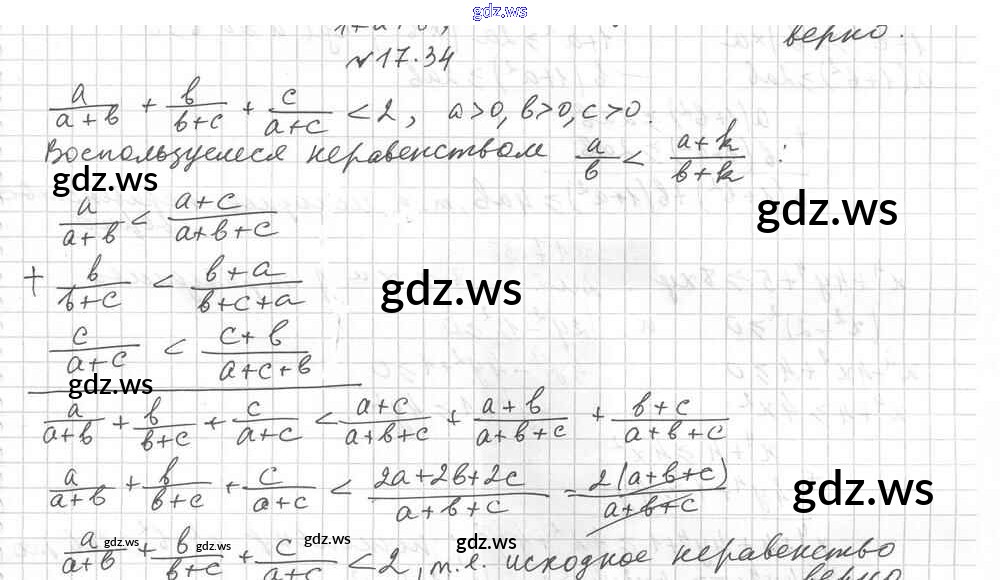 gdz.ws
1+a+b,
верно.
№17.34
a/(a+b) + b/(b+c) + c/(a+c) < 2, a>0, b>0, c>0.
Воспользуемся неравенством a/b < (a+k)/(b+k) :
gdz.ws
gdz.ws
a/(a+b) < (a+c)/(a+b+c)
+ b/(b+c) < (b+a)/(b+c+a)
gdz.ws
c/(a+c) < (c+b)/(a+c+b)
gdz.ws
a/(a+b) + b/(b+c) + c/(a+c) < (a+c)/(a+b+c) + (a+b)/(a+b+c) + (b+c)/(a+b+c)
a/(a+b) + b/(b+c) + c/(a+c) < (2a+2b+2c)/(a+b+c) = 2(a+b+c)/(a+b+c)
gdz.ws
a/(a+b) + b/(b+c) + c/(a+c) < 2, т.е. исходное неравенство
gdz.ws gdz.ws gdz.ws gdz.ws
верно